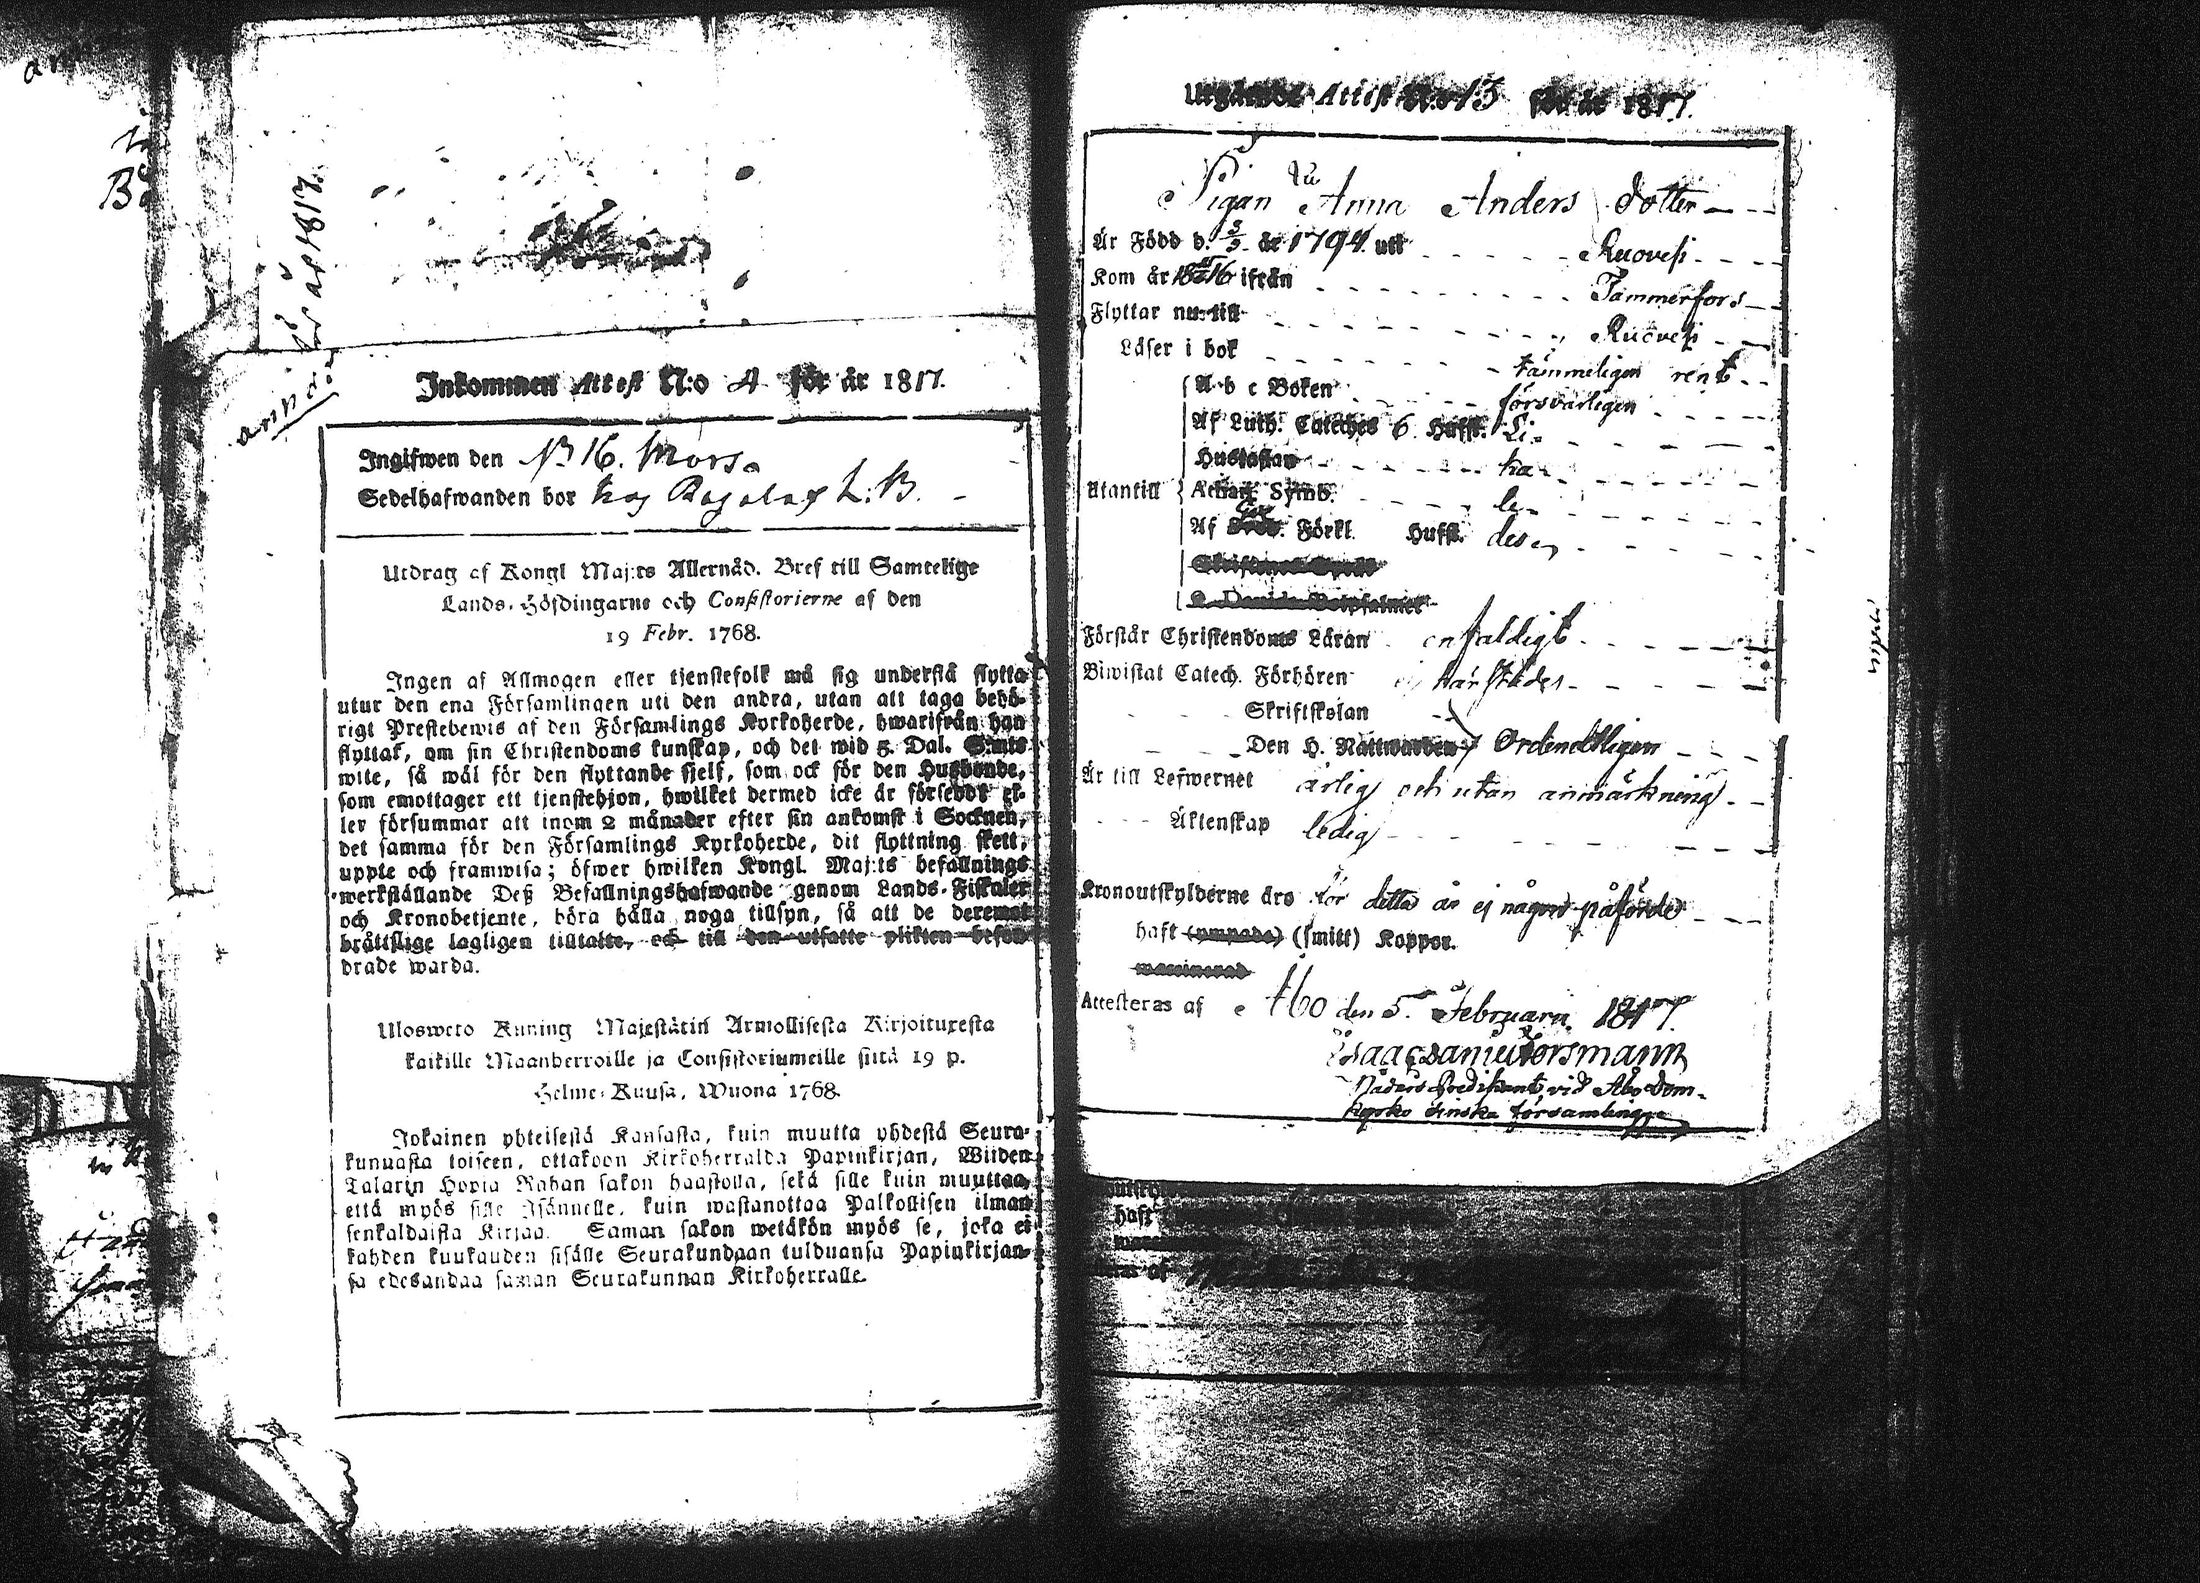 för år 1817.
Inkommen Attest N:o 4 för år 1817.
Ingifwen den 16. Mars.
Sedelhafwanden bor hos L: B.
Utdrag af Kongl Maj:ts Allernåd. Bref till Samtelige
Lands-Höfdingarne och Consistorierne af den
19 Febr. 1768.
Ingen af Allmogen eller tjenstefolk må sig understå flytta
utur den ena Församlingen uti den andra, utan att taga behö-
rigt Prestebewis af den Församlings Kyrkoherde, hwarifrån han
flyttat, om sin Christendoms kunskap, och det wid 5. Dal. S:mts
wite, så wäl för den flyttande sjelf, som ock för den Husbonde,
som emottager ett tjenstehjon, hwilket dermed icke är förseddt el-
ler försummar att inom 2 månader efter sin ankomst i Socknen,
det samma för den Församlings Kyrkoherde, dit flyttning skett,
uppte och framwisa; öfwer hwilken Kongl. Maj:ts befallnings
werkställande Deß Befallningshafwande genom Lands-Fiskaler
och Kronobetjente, böra hålla noga tillsyn, så att de deremot
bråttslige lagligen tilltalte, och till den utsatte plikten befor-
drade warda.
Ulosweto Kuning Majestätin Armollisesta Kirjoituxesta
kaikille Maanherroille ja Consistoriumeille siitä 19 p.
Helme-Kuusa, Wuona 1768.
Jokainen yhteisestä Kansasta, kuin muutta yhdestä Seura-
kunnasta toiseen, ottakoon Kirkoherralda Papinkirjan, Wiiden
Talarin Hopia Rahan sakon haastolla, sekä sille kuin muuttaa,
että myös sille Isännelle, kuin wastanottaa Palkollisen ilman
senkaldaista Kirjaa. Saman sakon wetäkön myös se, joka ei
kahden kuukauden sisälle Seurakundaan tulduansa Papinkirjan-
sa edesandaa saman Seurakunnan Kirkoherralle.
Utgående Attest N:o 13 för år 1817.
Pigan Anna Anders dotter
Är Född d. 3/9 år 1794 uti Ruovesi
Kom år 1816 ifrån Tammerfors
Flyttar nu till Ruovesi
Läser i bok tämmeligen rent
A b c Boken försvarligen
Af Luth. Cateches 6. Hufst. Li-
Hustaflan ka-
Utantill Athan. Symb. le-
Af Förkl. Hufst. des
Förstår Christendoms Läran enfaldigt
Biwistat Catech. Förhören ej härstädes
Skriftskolan
Den H. Nattwarden Ordentligen
Är till Lefwernet ärlig och utan anmärkning
Äktenskap ledig
Kronoutskylderne äro för detta år ej någre påförde
haft (ympade) (smitt) Koppor.
waccinerad
Attesteras af Åbo den 5. Februarii 1817.
Isaac Daniel Forsmann
Nådårs Predikant vid Åbo Dom-
kyrko finska församling